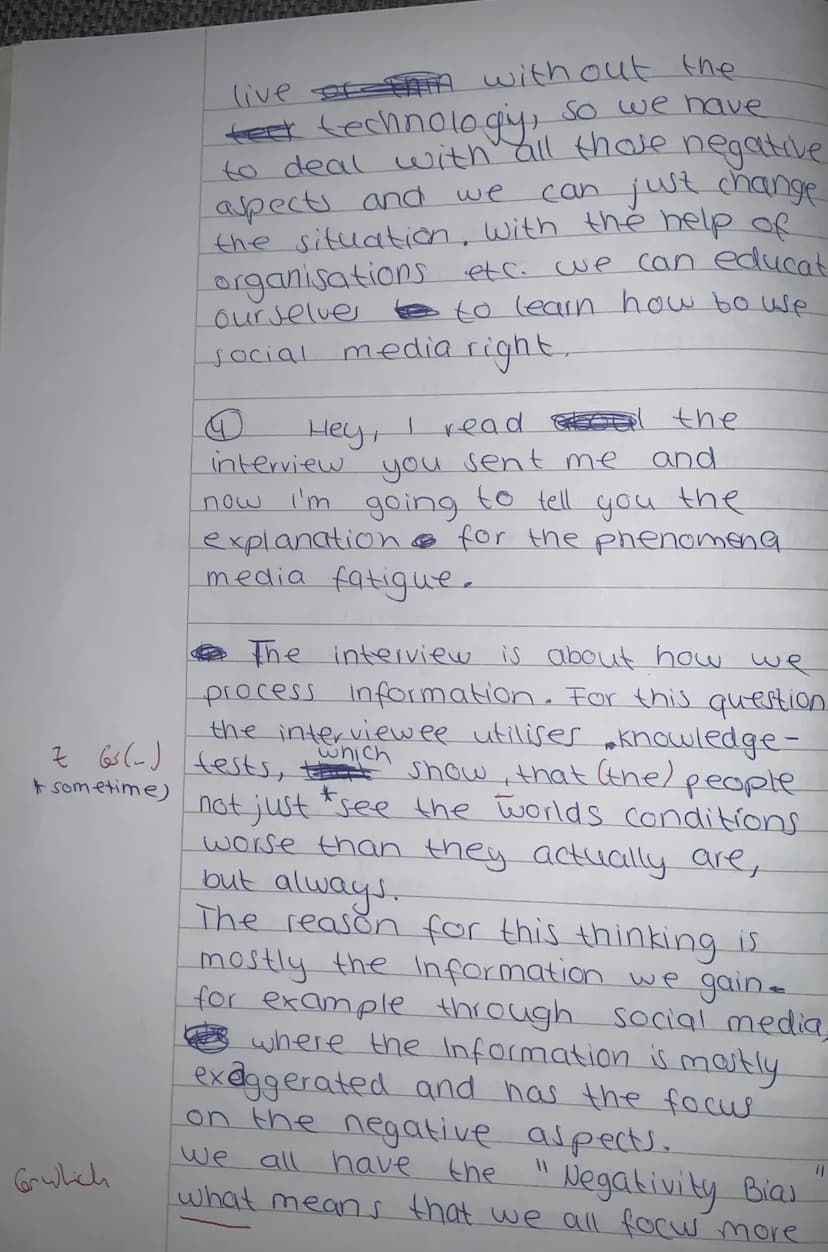 live without the
technology, so we have
to deal with all those negative
aspects and we can just change
the situation. with the help of
organisations etc. we can educat
ourselves to learn how to use
social media right.
④ Hey, I read the
interview you sent me and
now I'm going to tell you the
explanation for the phenomena
media fatigue.
The interview is about how we
process information. For this question
the interviewee utilises knowledge-
tests, which show, that (the) people
* sometimes
not just * see the worlds conditions
worse than they actually are,
but always.
The reason for this thinking is
mostly the information we gain
for example through social media,
where the information is mostly
exaggerated and has the focus
on the negative aspects.
we all have the "Negativity Bias"
Gr which
what means that we all focus more